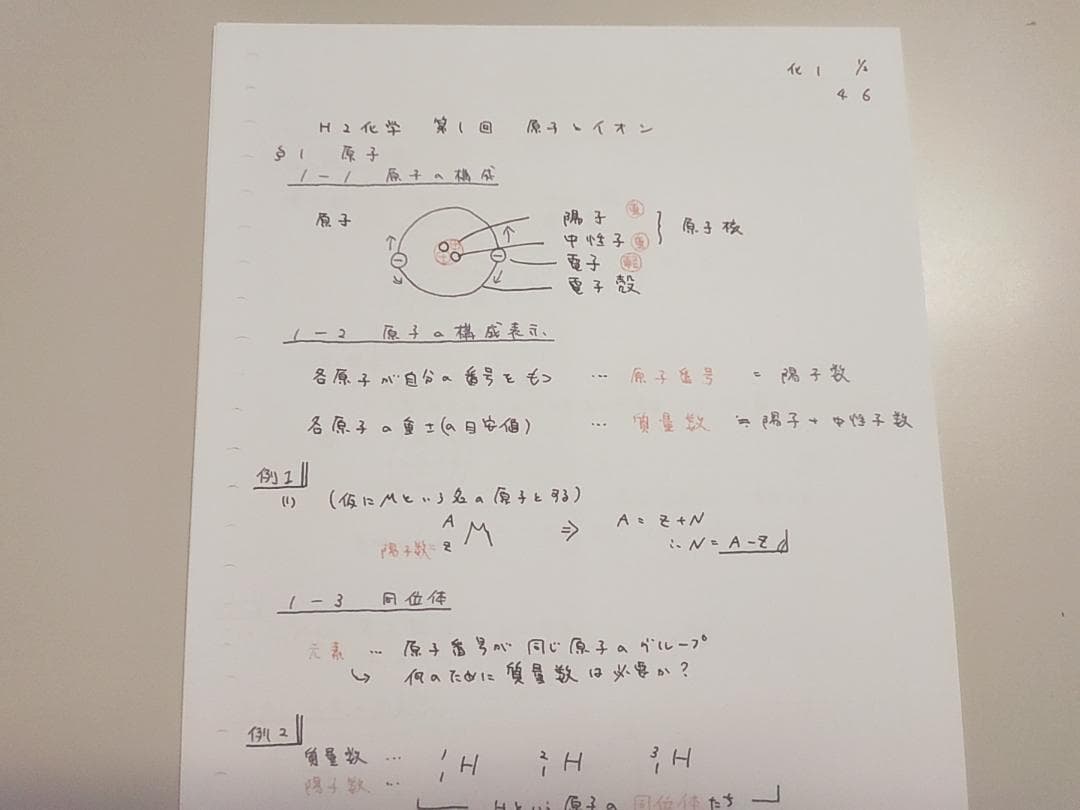 化 1 1/2
4 6
H2化学 第1回 原子とイオン
§1 原子
1-1 原子の構成
原子
陽子 重
中性子 重
原子核
電子 軽
電子殻
1-2 原子の構成表示
各原子が自分の番号をもつ … 原子番号 = 陽子数
各原子の重さ(の目安値) … 質量数 ≒ 陽子+中性子数
例1
(1) (仮にMという名の原子とする)
A
陽子数= Z M ⇒ A = Z + N
∴ N = A - Z
1-3 同位体
元素 … 原子番号が同じ原子のグループ
↳ 何のために質量数は必要か?
例2
質量数 … 1 H 2 H 3 H
陽子数 … 1 1 1
Hという原子の同位体たち